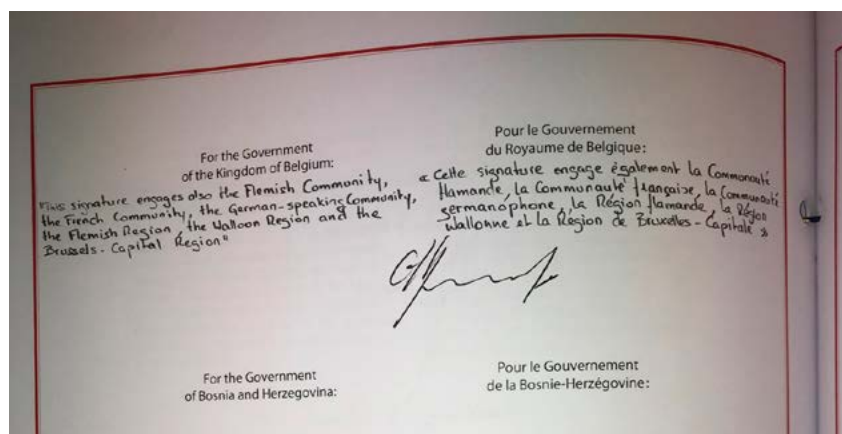 For the Government
of the Kingdom of Belgium:
"This signature engages also the Flemish Community,
the French Community, the German-speaking Community,
the Flemish Region, the Walloon Region and the
Brussels-Capital Region"
Pour le Gouvernement
du Royaume de Belgique:
« Cette signature engage également la Communauté
flamande, la Communauté française, la Communauté
germanophone, la Région flamande, la Région
wallonne et la Région de Bruxelles-Capitale »
For the Government
of Bosnia and Herzegovina:
Pour le Gouvernement
de la Bosnie-Herzégovine: